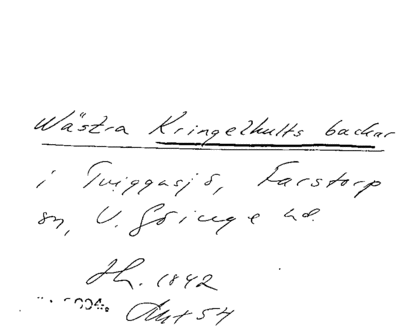 Wästra Kringelhults backar
i Tviggasjö, Farstorp
sn, V. Göinge hd.
Jh. 1842
Akt 54